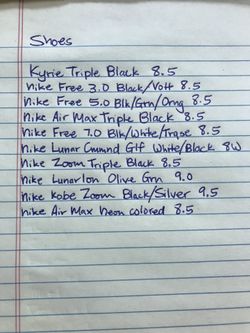 Shoes
Kyrie Triple Black 8.5
Nike Free 3.0 Black/Volt 8.5
Nike Free 5.0 Blk/Grn/Orng 8.5
Nike Air Max Triple Black 8.5
Nike Free 7.0 Blk/White/Trqse 8.5
Nike Lunar Cmmnd Glf White/Black 8W
Nike Zoom Triple Black 8.5
Nike Lunarlon Olive Grn 9.0
Nike Kobe Zoom Black/Silver 9.5
Nike Air Max Neon colored 8.5